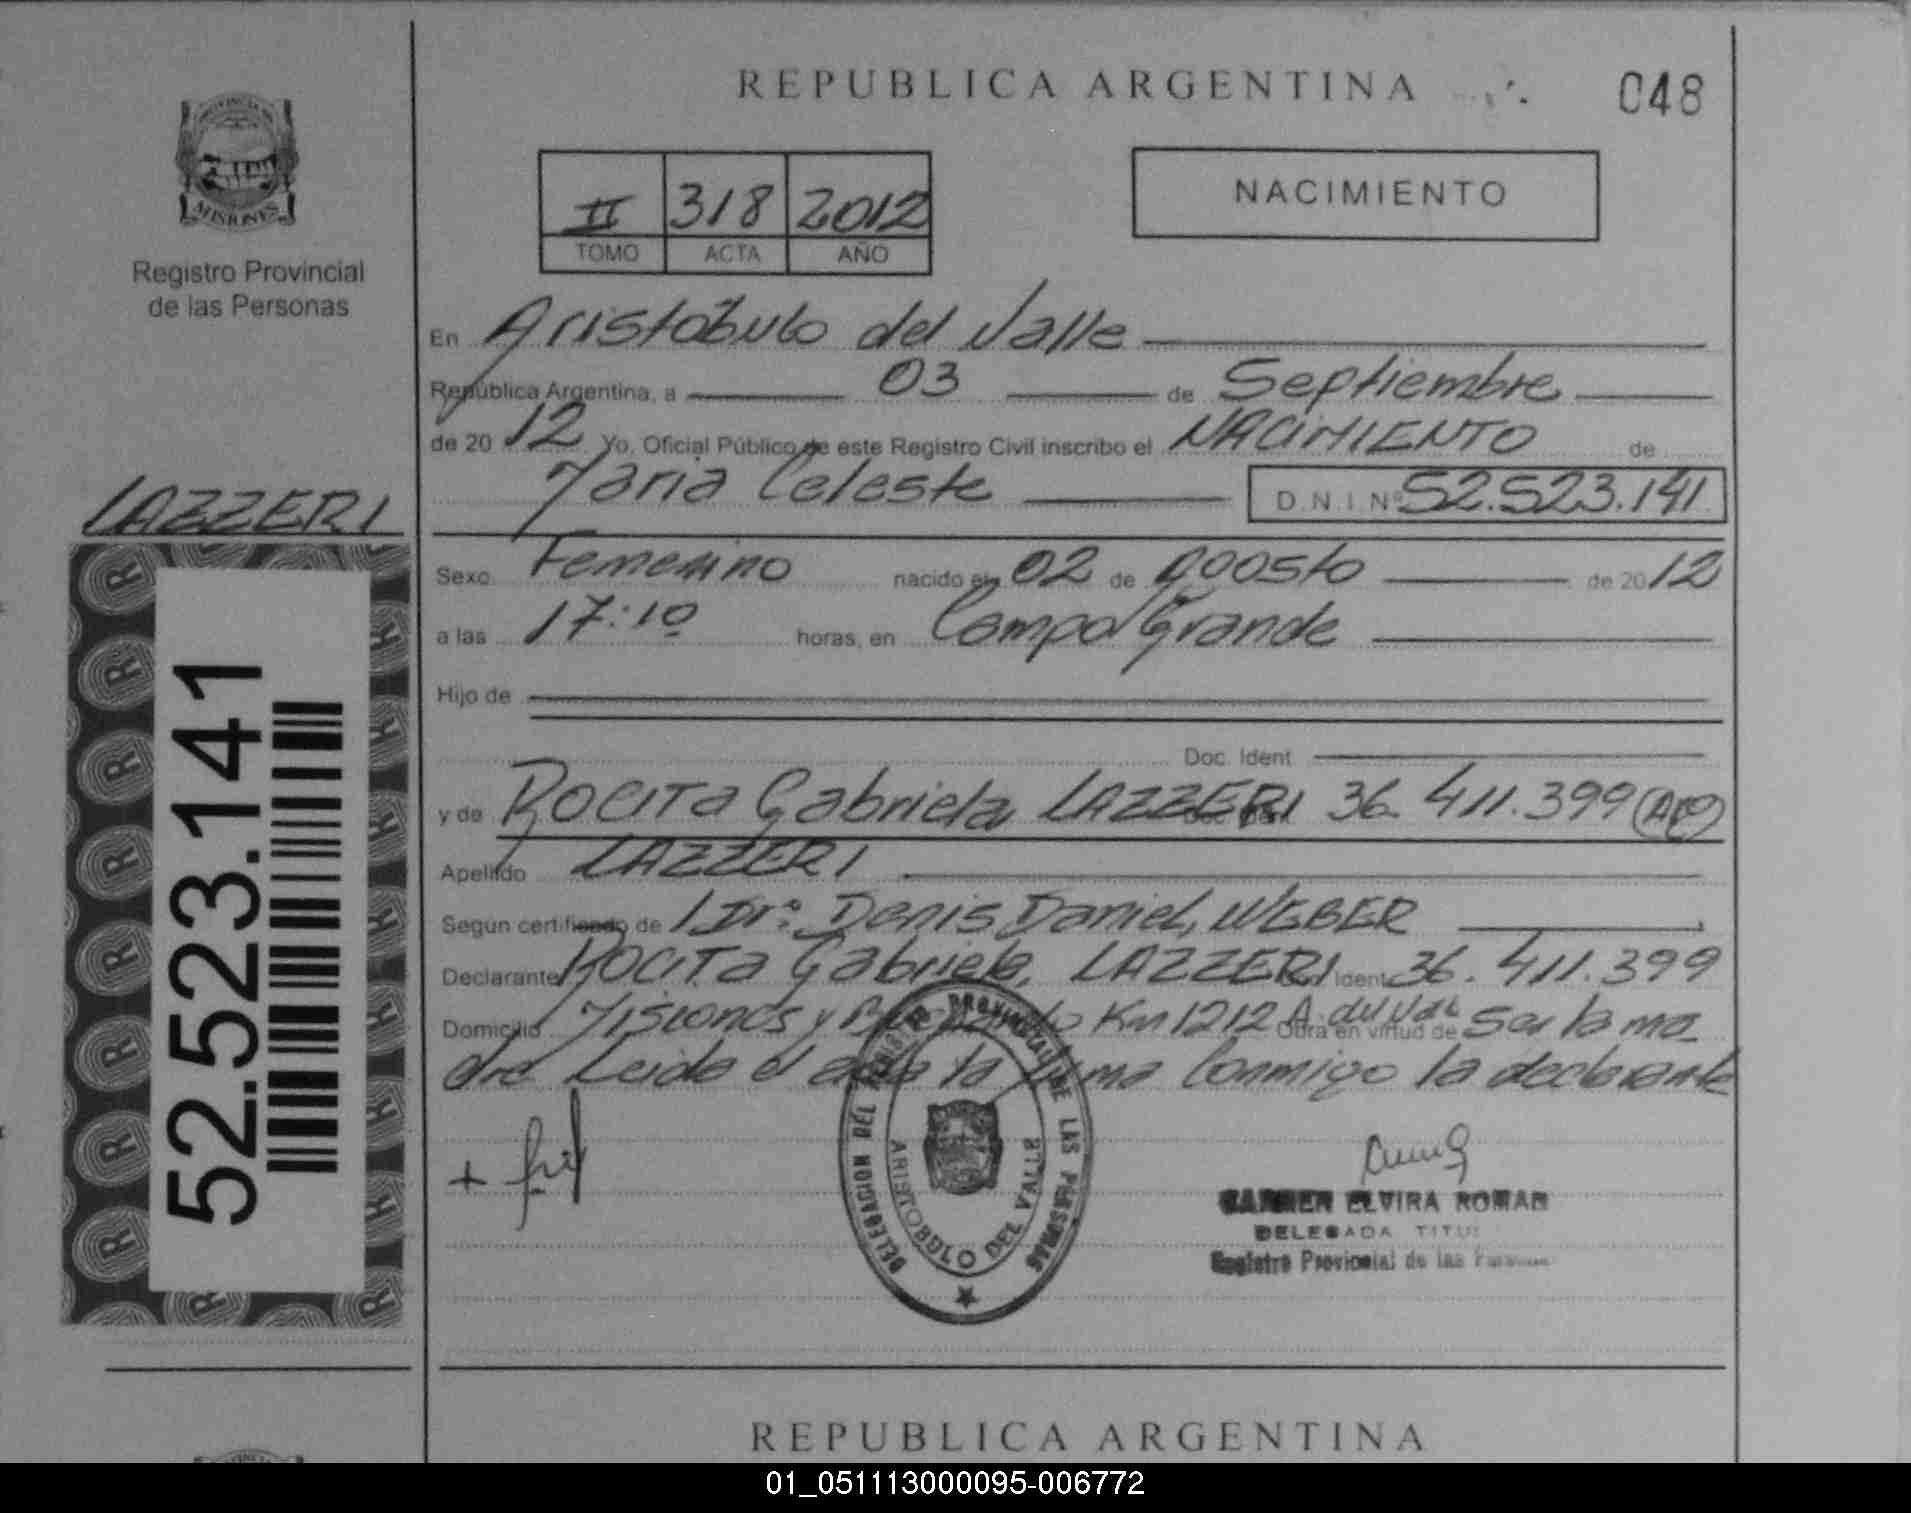 REPUBLICA ARGENTINA
048
PROVINCIA DE
MISIONES
Registro Provincial
de las Personas
II 318 2012
TOMO ACTA AÑO
NACIMIENTO
En Aristobulo del Valle
República Argentina, a 03 de Septiembre
de 20 12 Yo, Oficial Público de este Registro Civil inscribo el NACIMIENTO de
LAZZERI
Maria Celeste D.N.I. Nº 52.523.141
Sexo Femenino nacido el 02 de Agosto de 2012
a las 17:10 horas, en Campo Grande
Hijo de
Doc. Ident
y de ROCITA Gabriela LAZZERI 36.411.399
Apellido LAZZERI
Según certificado de Dr. Denis Daniel, WEBER
Declarante ROCITA Gabriela, LAZZERI Ident 36.411.399
Domicilio Misiones y Km 1212 A. del Valle Obra en virtud de Ser la ma
dre Leida el acta la firma Conmigo la declarante
52.523.141
DELEGACION DEL REGISTRO PROVINCIAL DE LAS PERSONAS
ARISTOBULO DEL VALLE
CARMEN ELVIRA ROMAN
DELEGADA TITU
Registro Provincial de las Personas
REPUBLICA ARGENTINA
01_051113000095-006772